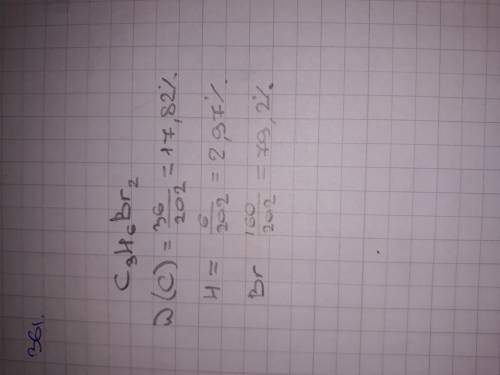 361.
C₃H₆Br₂
W(C) = 36/202 = 17,82%.
H = 6/202 = 2,97%.
Br 160/202 = 79,2%